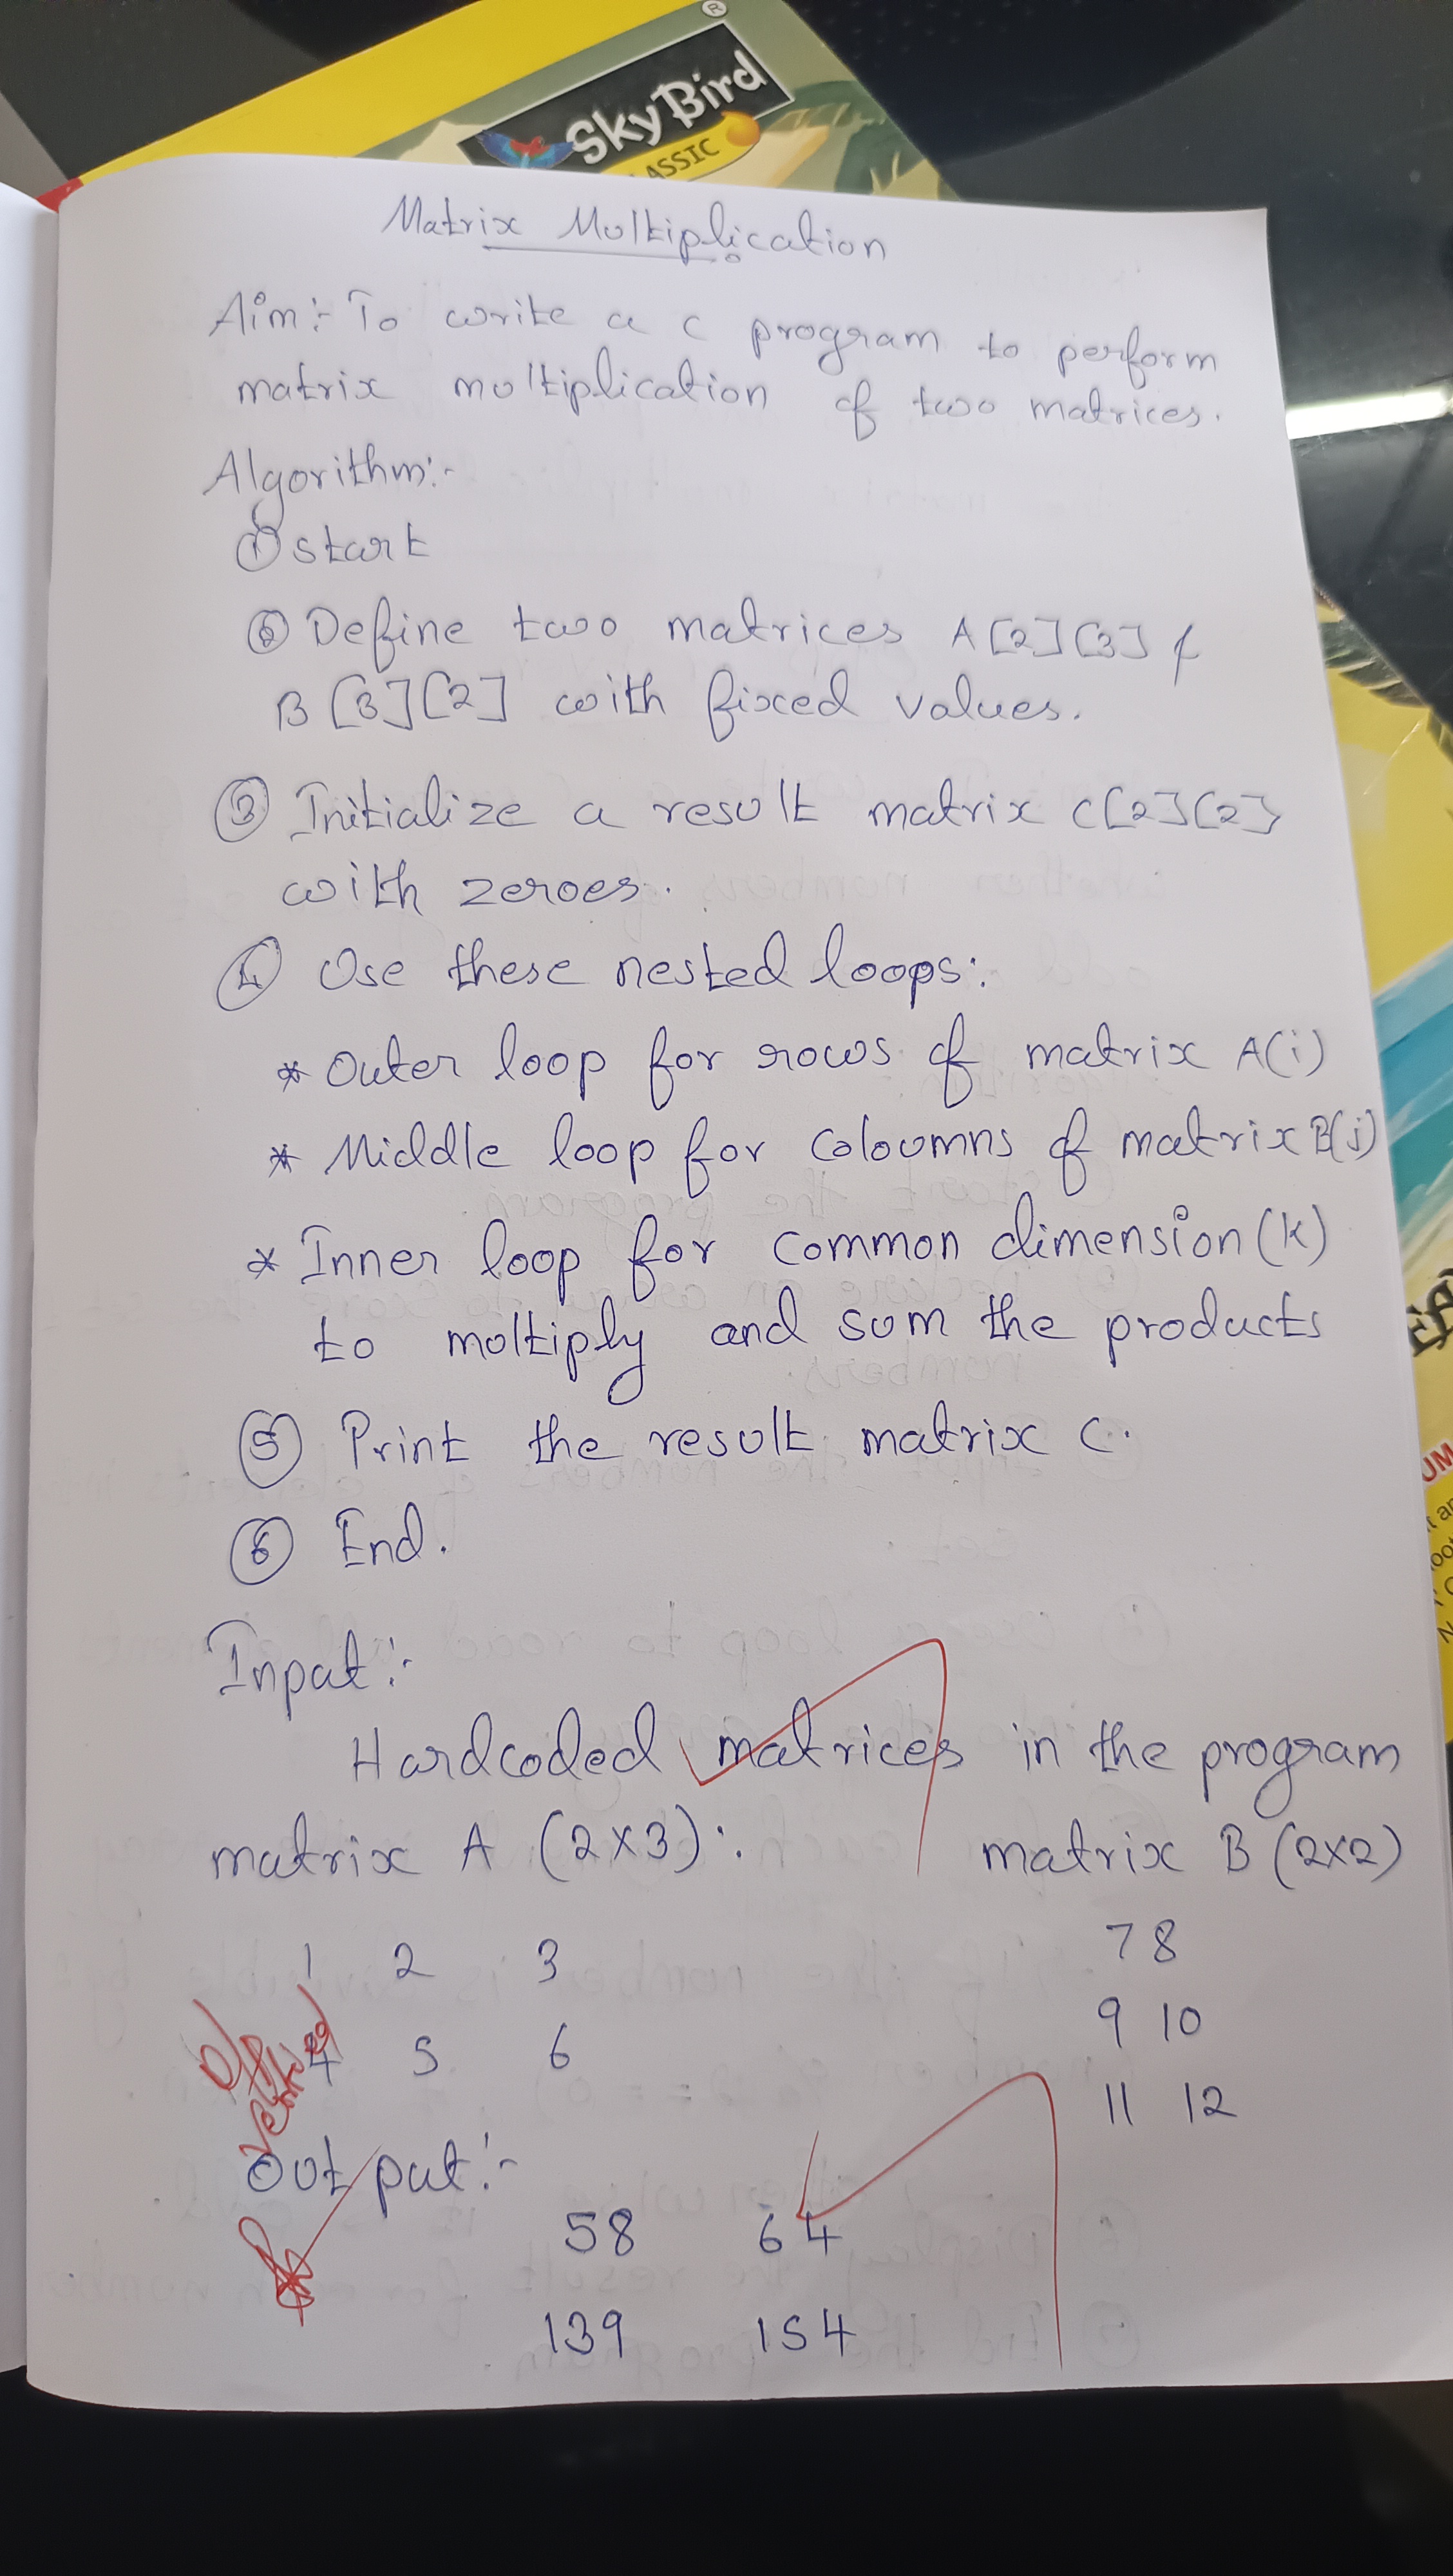 ®
SkyBird
ASSIC
Matrix Multiplication
Aim:- To write a c program to perform
matrix multiplication of two matrices.
Algorithm:-
① start
② Define two matrices A[2][3] &
B[3][2] with fixed values.
③ Initialize a result matrix C[2][2]
with zeroes.
④ Use these nested loops:
* Outer loop for rows of matrix A(i)
* Middle loop for coloumns of matrix B(j)
* Inner loop for common dimension (k)
to multiply and sum the products
⑤ Print the result matrix C.
⑥ End.
Input:-
Hardcoded matrices in the program
matrix A (2x3): matrix B (2x2)
1 2 3 7 8
4 5 6 9 10
11 12
O/P
verified
Output:-
58 64
139 154
UM